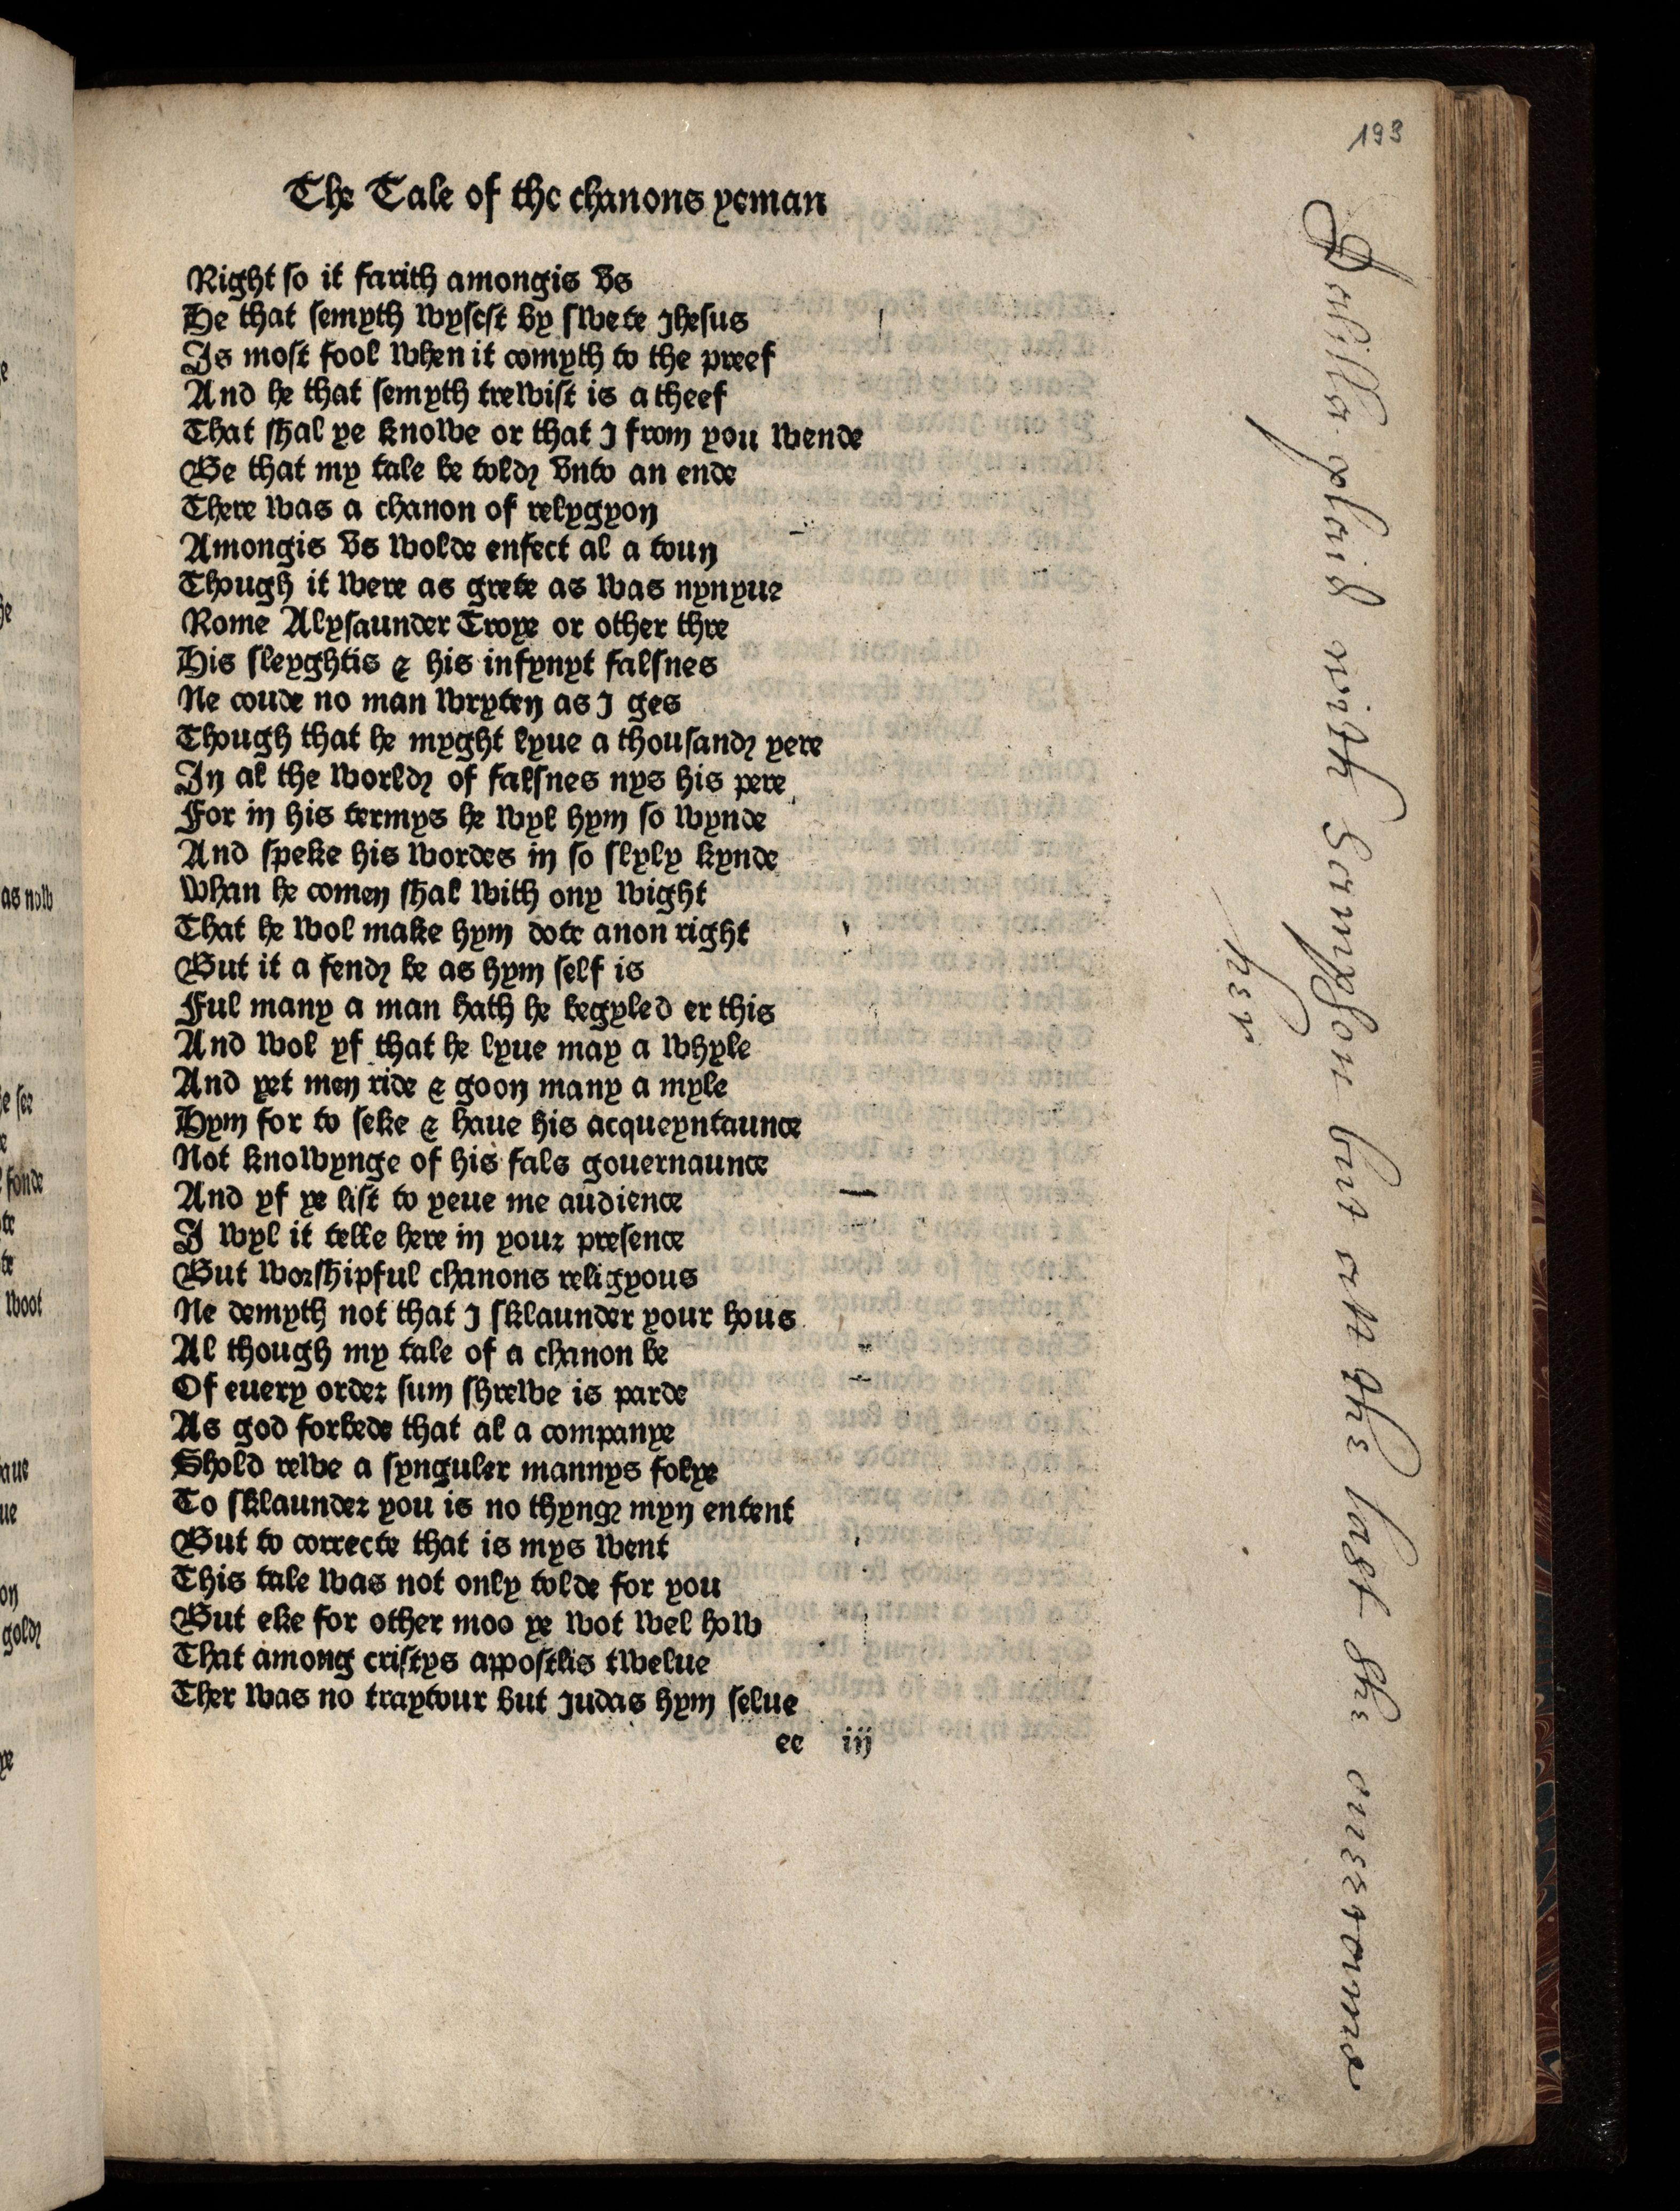 193
The Tale of the chanons yeman
Right so it farith amongis vs
He that semyth wysest by swete Jhesus
Is most fool when it comyth to the preef
And he that semyth trewist is a theef
That shal ye knowe or that I from you wende
Be that my tale be told vnto an ende
There was a chanon of relygyon
Amongis vs wolde enfect al a toun
Though it were as grete as was nynyue
Rome Alysaunder Troye or other thre
His sleyghtis & his infynyt falsnes
Ne coude no man wryten as I ges
Though that he myght lyue a thousand yere
In al the world of falsnes nys his pere
For in his termys he wyl hym so wynde
And speke his wordes in so slyly kynde
Whan he comen shal with ony wight
That he wol make hym dote anon right
But it a fend be as hym self is
Ful many a man hath he begyled er this
And wol yf that he lyue may a whyle
And yet men ride & goon many a myle
Hym for to seke & haue his acqueyntaunce
Not knowynge of his fals gouernaunce
And yf ye list to yeue me audience
I wyl it telle here in your presence
But worshipful chanons religyous
Ne demyth not that I sklaunder your hous
Al though my tale of a chanon be
Of euery order sum shrewe is parde
As god forbede that al a companye
Shold rewe a synguler mannys folye
To sklaunder you is no thyng myn entent
But to correcte that is mys went
This tale was not only tolde for you
But eke for other moo ye wot wel how
That among cristys appostlis twelue
Ther was no traytour but Judas hym selue
ee iij
Dalilla plaid with Sampson but att the last she ouercame
hey
as now
fonde
woot
gold